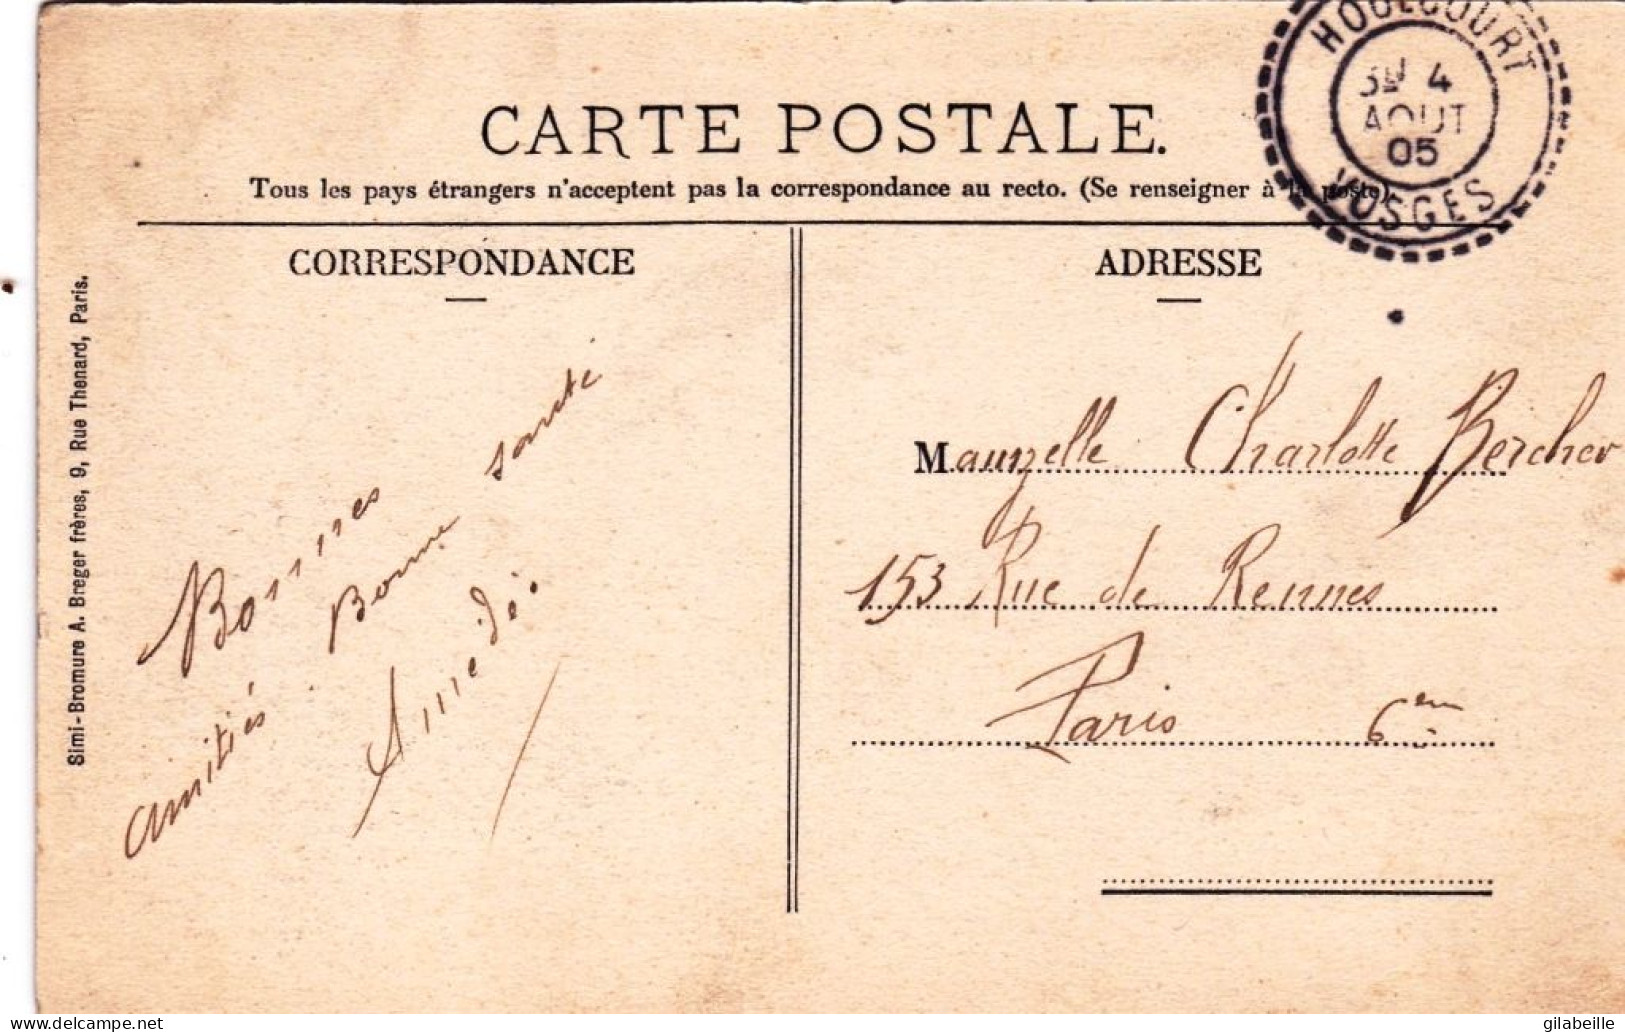 HOUÉCOURT
4
AOUT
05
VOSGES
CARTE POSTALE.
Tous les pays étrangers n'acceptent pas la correspondance au recto. (Se renseigner à la poste).
CORRESPONDANCE
Bonnes
amitiés. Bonne santé
Amedé.
ADRESSE
Mamzelle Charlotte Bercher
153 Rue de Rennes
Paris 6em
Simi-Bromure A. Breger frères, 9, Rue Thenard, Paris.
www.delcampe.net
gilabeille